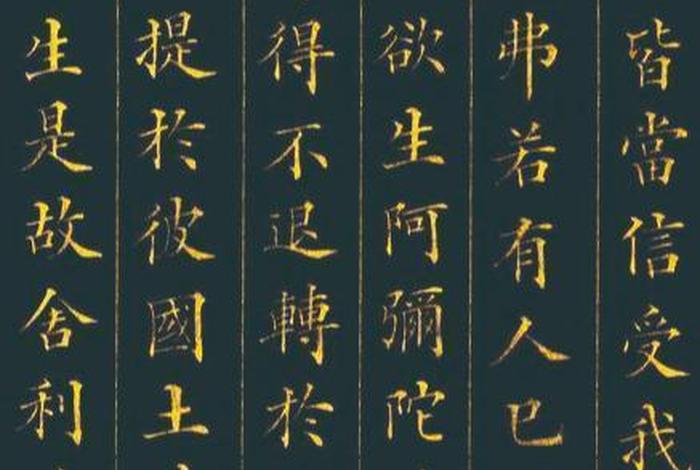 皆當信受我
弗若有人已
欲生阿彌陀
得不退轉於
提於彼國土
生是故舍利